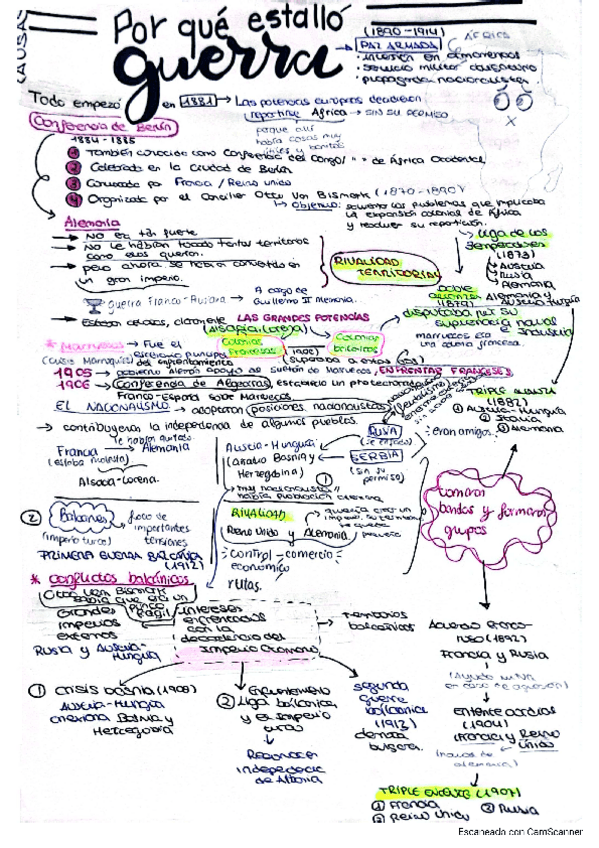 CAUSAS
Por qué estalló
guerra
(1890-1914)
PAZ ARMADA
África
· servicio militar obligatorio
· propaganda nacionalista
Todo empezó en 1881 → Las potencias europeas decidieron
repartirse África → SIN SU PERMISO
porque allí
había cosas muy
útiles y bonitas
Conferencia de Berlín
1884-1885
1 También conocida como Conferencia del Congo/ " " de África Occidental
2 Celebrada en la ciudad de Berlín
3 Convocada por Francia / Reino Unido
4 Organizada por el Canciller Otto Von Bismark (1870-1890)
→ Objetivo: solventar los problemas que implicaba
la expansión colonial de África
y resolver su repartición.
Alemania
→ No era tan fuerte
→ No le habían tocado tantos territorios
como ellos querían.
→ pero ahora se había convertido en
un gran imperio.
RIVALIDAD
TERRITORIAL
Liga de los
3 emperadores
(1873)
→ Austria
→ Rusia
→ Alemania
Doble
alianza
(1879)
Alemania y
Austria-Hungría
guerra Franco-Prusiana → A cargo de
Guillermo II Alemania.
→ Estaban celosos, claramente LAS GRANDES POTENCIAS
disputaba por su
supremacía naval
e industrial
(Alsacia-Lorena)
Colonias
Francesas
Colonias
británicas
* Marruecos → Fue el
escenario principal
del enfrentamiento
(crisis Marroquí)
marruecos era una
colonia francesa.
1905 → gobierno Alemán apoyó al Sultán de Marruecos, ENFRENTAR FRANCESES
1906 → Conferencia de Algeciras, estableció un protectorado
Franco-España sobre Marruecos.
EL NACIONALISMO → adoptaron posiciones nacionalistas
→ contribuyeron la independencia de algunos pueblos.
TRIPLE ALIANZA
(1882)
1 Austria-Hungría
2 Italia
3 Alemania
le habían quitado
Francia → Alemania
(estaba molesta)
Alsacia-Lorena.
Austria-Hungría
(Anexionó Bosnia y
Herzegobina)
RUSIA
(se enfadó)
SERBIA
(sin su
permiso)
eran amigos.
1
muy nacionalista
había población eslava
2 Balcanes
(imperio turco)
foco de
importantes
tensiones
PRIMERA GUERRA BALCÁNICA
(1912)
RIVALIDAD
(Reino Unido y Alemania)
control
económico
comercio
rutas.
tomaron
bandos y formaron
grupos
* conflictos balcánicos
Otto Von Bismark
sabía que era un
punto
frágil
Grandes
imperios
externos
Rusia y Austria-
Hungría
Intereses
enfrentados
con la
decadencia del
Imperio Otomano
→ territorios
balcánicos
1 crisis bosnia (1908)
Austria-Hungría
anexiona Bosnia y
Herzegovina
2 Enfrentamiento
Liga balcánica
y el Imperio
turco
Reconocer
independencia
de Albania
segunda
guerra
balcánica
(1913)
derrota
búlgara.
Acuerdo franco-
ruso (1892)
Francia y Rusia
(Ayuda mutua
en caso de agresión)
Entente cordial
(1904)
(Francia y Reino
Unido)
TRIPLE ENTENTE (1907)
1 Francia
2 Reino Unido
3 Rusia
Escaneado con CamScanner